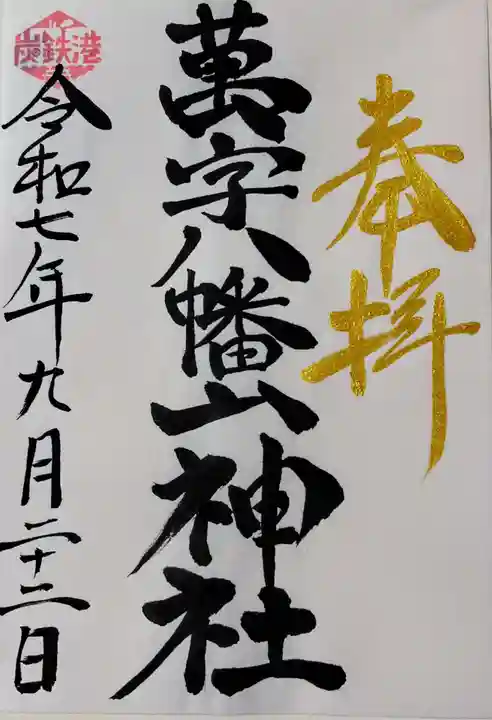 奉拝
萬字八幡山神社
令和七年九月二十二日
炭鉄港